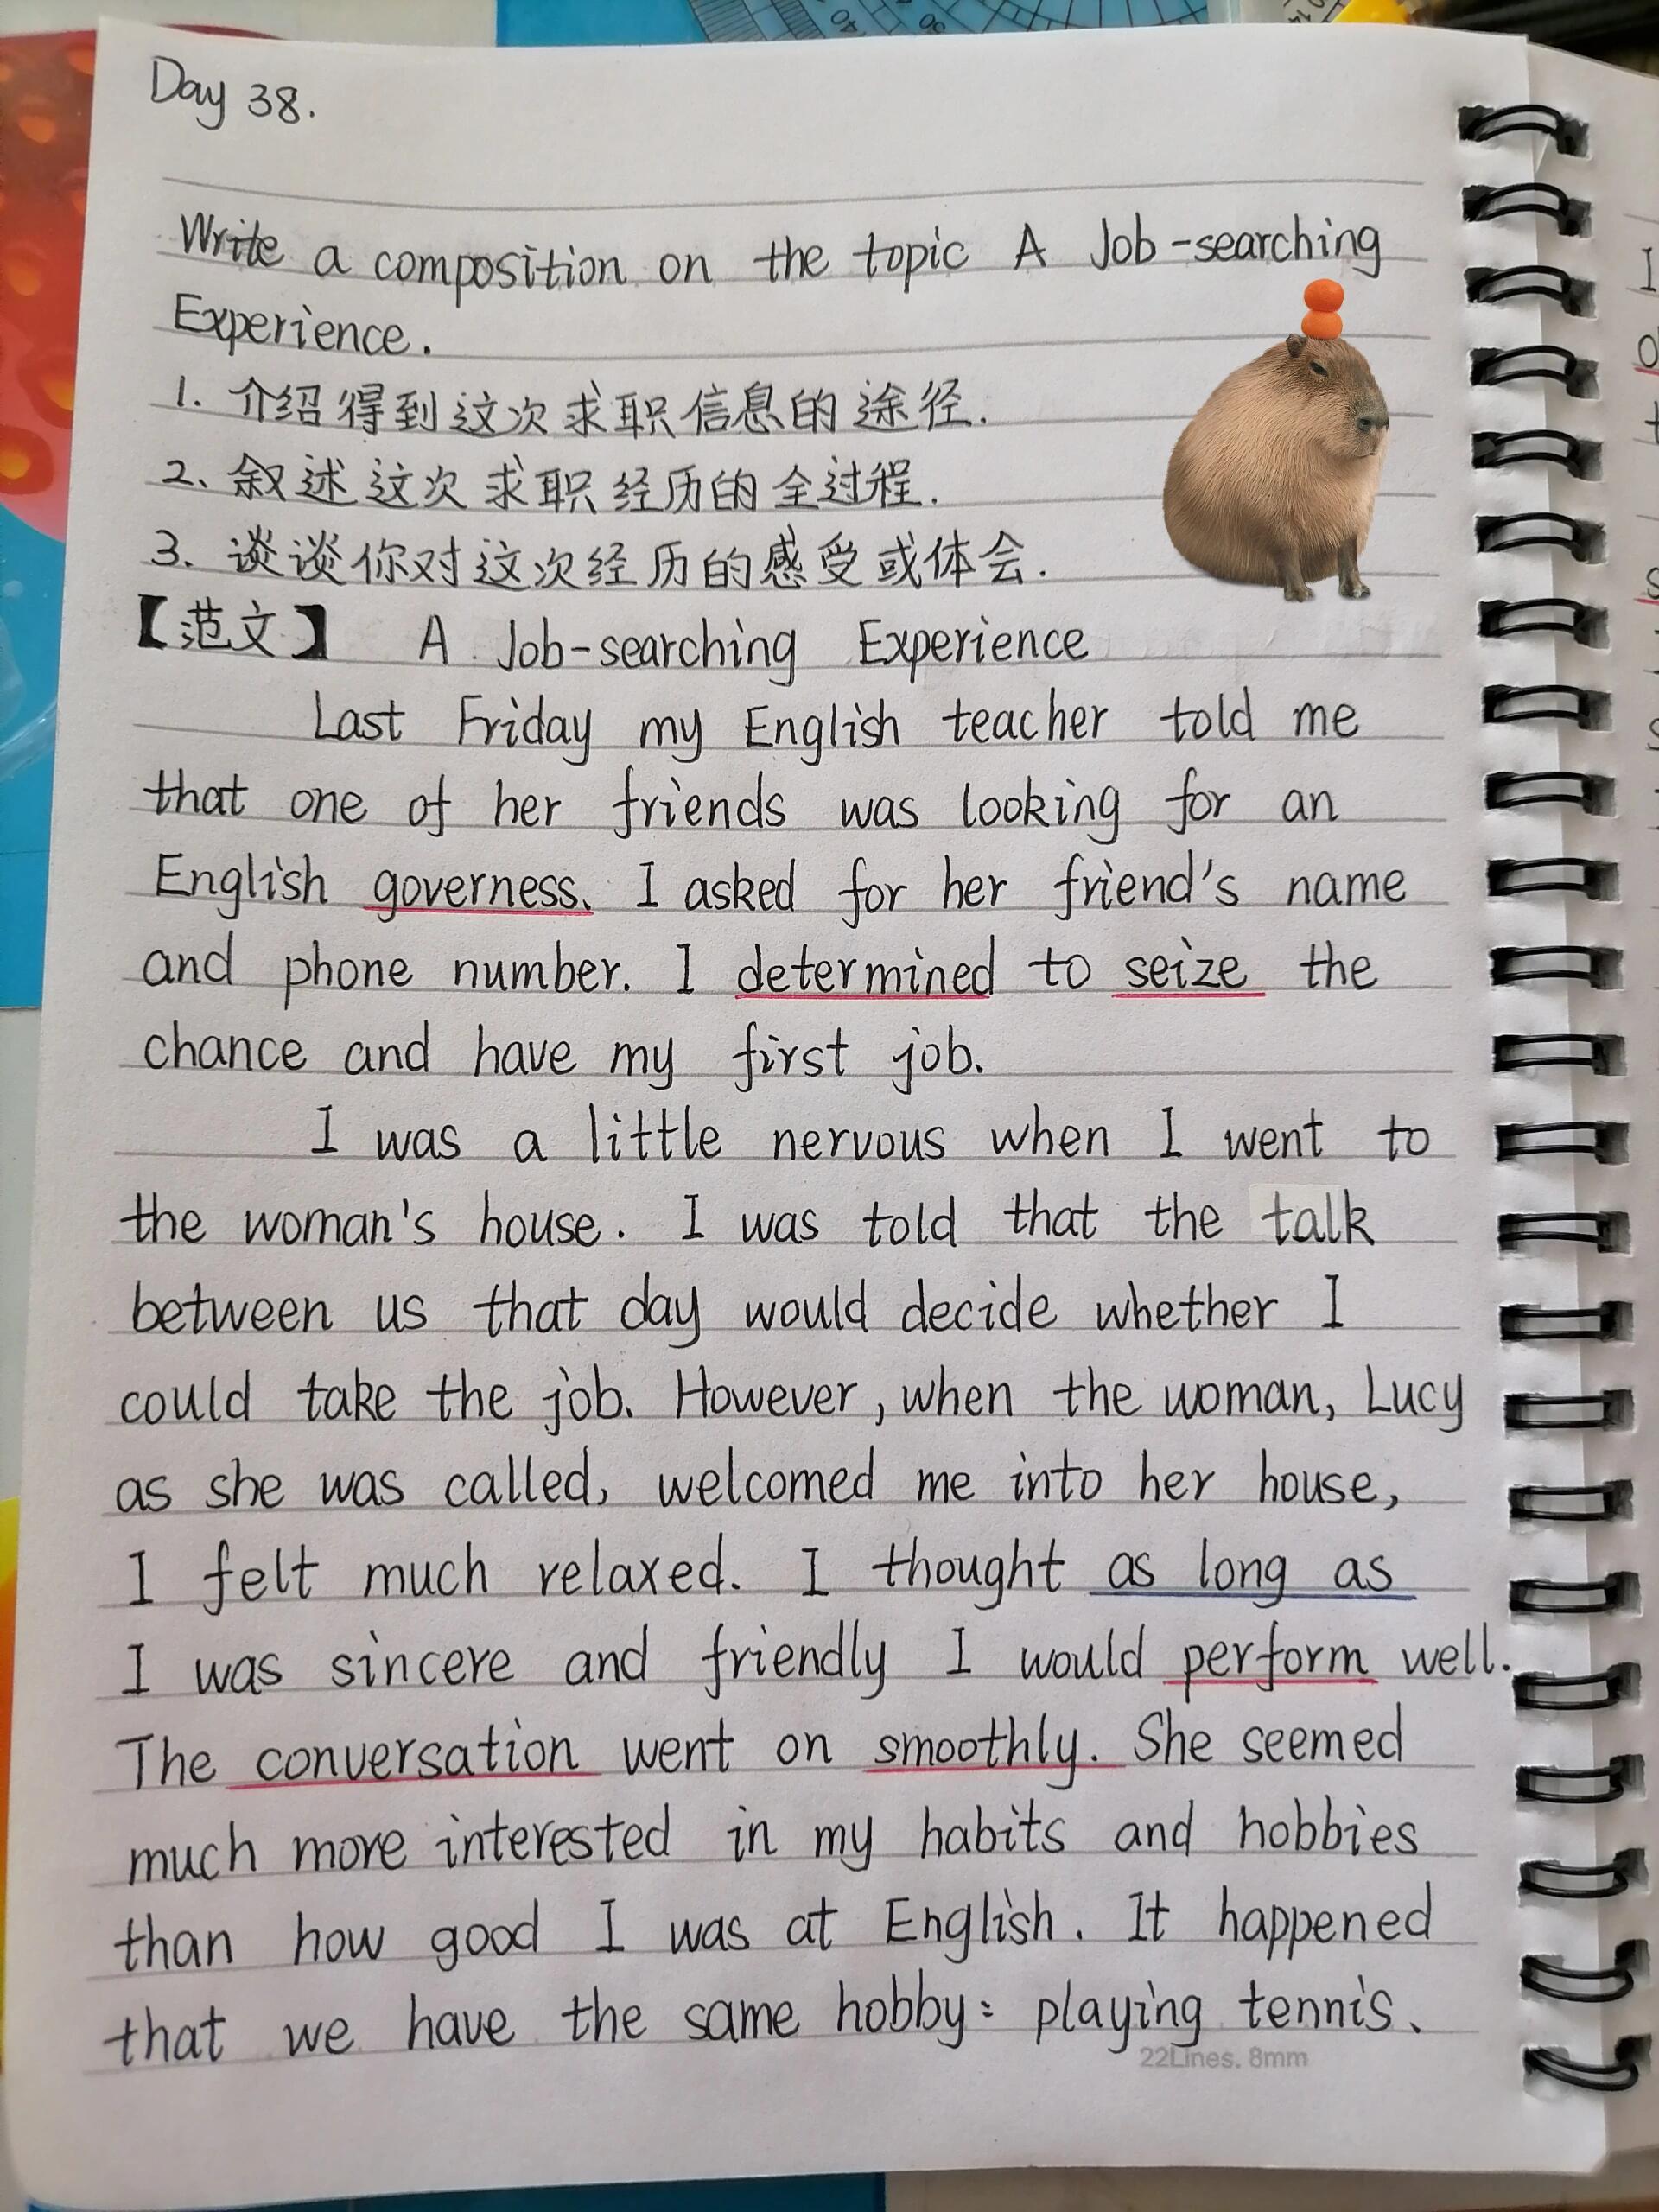 Day 38.
Write a composition on the topic A Job-searching
Experience.
1. 介绍得到这次求职信息的途径.
2. 叙述这次求职经历的全过程.
3. 谈谈你对这次经历的感受或体会.
【范文】 A Job-searching Experience
Last Friday my English teacher told me
that one of her friends was looking for an
English governess. I asked for her friend's name
and phone number. I determined to seize the
chance and have my first job.
I was a little nervous when I went to
the woman's house. I was told that the talk
between us that day would decide whether I
could take the job. However, when the woman, Lucy
as she was called, welcomed me into her house,
I felt much relaxed. I thought as long as
I was sincere and friendly I would perform well.
The conversation went on smoothly. She seemed
much more interested in my habits and hobbies
than how good I was at English. It happened
that we have the same hobby: playing tennis.
22Lines. 8mm